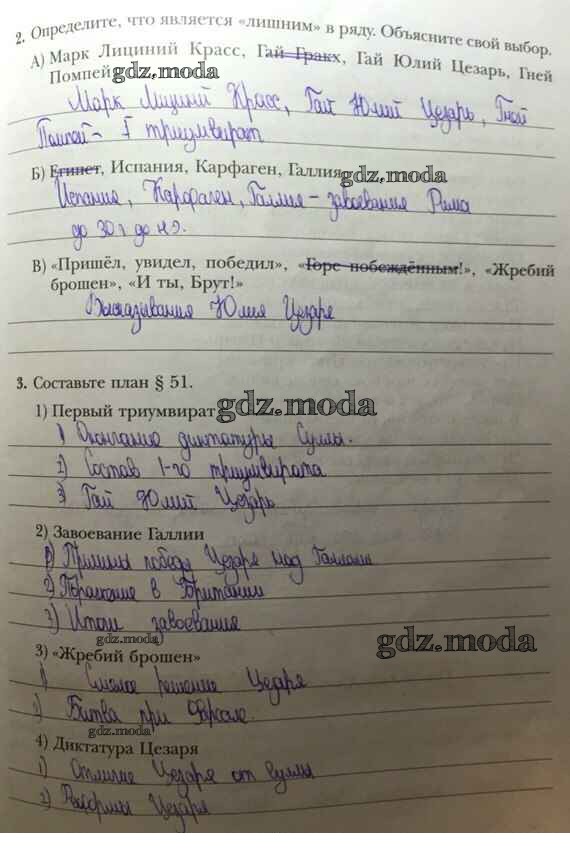 2. Определите, что является «лишним» в ряду. Объясните свой выбор.
А) Марк Лициний Красс, Гай Гракх, Гай Юлий Цезарь, Гней
Помпей gdz.moda
Марк Лициний Красс, Гай Юлий Цезарь, Гней
Помпей – I триумвират
Б) Египет, Испания, Карфаген, Галлия gdz.moda
Испания, Карфаген, Галлия – завоевания Рима
до 30 г до н.э.
В) «Пришёл, увидел, победил», «Горе побеждённым!», «Жребий
брошен», «И ты, Брут!»
Высказывания Юлия Цезаря
3. Составьте план § 51.
1) Первый триумвират gdz.moda
1) Окончание диктатуры Суллы.
2) Состав 1-го триумвирата
3) Гай Юлий Цезарь
2) Завоевание Галлии
1) победы Цезаря над Галлами
2) Поражение в Британии
3) Итоги завоевания
gdz.moda
gdz.moda
3) «Жребий брошен»
1) Смелое решение Цезаря
2) Битва при Фарсале.
gdz.moda
4) Диктатура Цезаря
1) Отличие Цезаря от Суллы
2) Реформы Цезаря